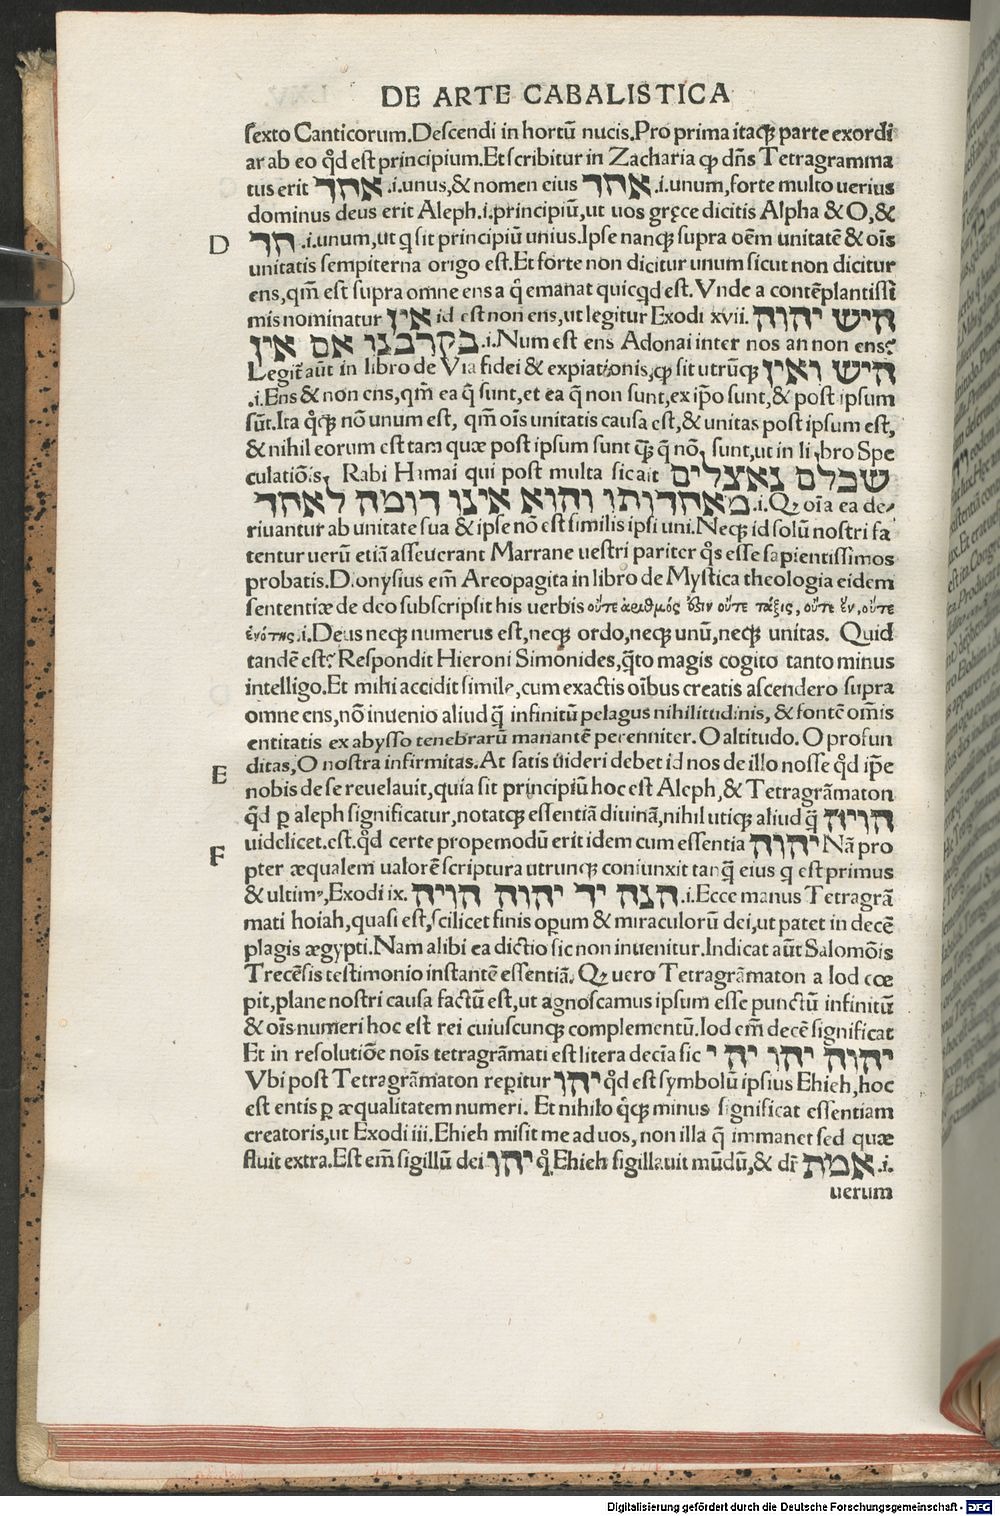 DE ARTE CABALISTICA
sexto Canticorum.Descendi in hortū nucis.Pro prima itaqꝫ parte exordi
ar ab eo qd̄ est principium.Et scribitur in Zacharia ꝙ dn̄s Tetragramma
tus erit אחד .i.unus,& nomen eius אחד .i.unum,forte multo uerius
dominus deus erit Aleph.i.principiū,ut uos gręce dicitis Alpha & O,&
D חד .i.unum,ut q sit principiū unius.Ipse nanqꝫ supra oēm unitatē & oīs
unitatis sempiterna origo est.Et forte non dicitur unum sicut non dicitur
ens,qm̄ est supra omne ens a q̊ emanat quicqd est. Vnde a contēplantissi
mis nominatur אין id est non ens,ut legitur Exodi xvii. היש יהוה
בקרבנו אם אין .i.Num est ens Adonai inter nos an non ens?
Legit᷑ aūt in libro de Via fidei & expiationis,ꝙ sit utrūqꝫ היש ואין
.i.Ens & non ens,qm̄ ea q̄ sunt,et ea q̄ non sunt,ex ip̄o sunt,& post ipsum
sūt.Ita q̊qꝫ nō unum est, qm̄ oīs unitatis causa est,& unitas post ipsum est,
& nihil eorum est tam quæ post ipsum sunt qꝫ̄ q̄ nō sunt,ut in libro Spe
culatiōis, Rabi Hamai qui post multa sic ait שכלם נאצלים
מאחדותו והוא אינו דומה לאחד .i.Qꝫ oīa ea de
riuantur ab unitate sua & ipse nō est similis ipsi uni.Neqꝫ id solū nostri fa
tentur uerū etiā asseuerant Marrane uestri pariter q̊s esse sapientissimos
probatis.Dionysius em̄ Areopagita in libro de Mystica theologia eidem
sententiæ de deo subscripsit his uerbis οὔτε ἀριθμός ὅϛιν οὔτε τάξις, οὔτε ἕν, οὔτε
ἑνότης.i.Deus neqꝫ numerus est,neqꝫ ordo,neqꝫ unū,neqꝫ unitas. Quid
tandē est? Respondit Hieroni Simonides,q̄to magis cogito tanto minus
intelligo.Et mihi accidit simile,cum exactis oībus creatis ascendero supra
omne ens,nō inuenio aliud q̄ infinitū pelagus nihilitudinis, & fontē om̄is
entitatis ex abysso tenebrarū manantē perenniter. O altitudo. O profun
E ditas,O nostra infirmitas.At satis uideri debet id nos de illo nosse qd̄ ip̄e
nobis de se reuelauit,quia sit principiū hoc est Aleph,& Tetragrāmaton
qd̄ ꝑ aleph significatur,notatqꝫ essentiā diuinā,nihil utiqꝫ aliud q̄ הויה
F uidelicet.est.qd̄ certe propemodū erit idem cum essentia יהוה Nā pro
pter æqualem ualorē scriptura utrunqꝫ coniunxit tanq̄ eius q est primus
& ultimꝰ,Exodi ix. הנה יד יהוה הויה .i.Ecce manus Tetragrā
mati hoiah,quasi est,scilicet finis oꝑum & miraculorū dei,ut patet in decē
plagis ægypti.Nam alibi ea dictio sic non inuenitur.Indicat aūt Salomōis
Trecēsis testimonio instantē essentiā. Qꝫ uero Tetragrāmaton a Iod cœ
pit,plane nostri causa factū est,ut agnoscamus ipsum esse punctū infinitū
& oīs numeri hoc est rei cuiuscunqꝫ complementū.Iod em̄ decē significat
Et in resolutiōe nois tetragrāmati est litera decīa sic יהוה יהו יה י
Vbi post Tetragrāmaton reꝑitur יהו qd̄ est symbolū ipsius Ehieh,hoc
est entis ꝑ æqualitatem numeri. Et nihilo q̊qꝫ minus significat essentiam
creatoris,ut Exodi iii.Ehieh misit me ad uos, non illa q̄ immanet sed quæ
fluit extra.Est em̄ sigillū dei יהו q̊ Ehieh sigillauit mūdū,& dr̄ אמת .i.
uerum
Digitalisierung gefördert durch die Deutsche Forschungsgemeinschaft - DFG